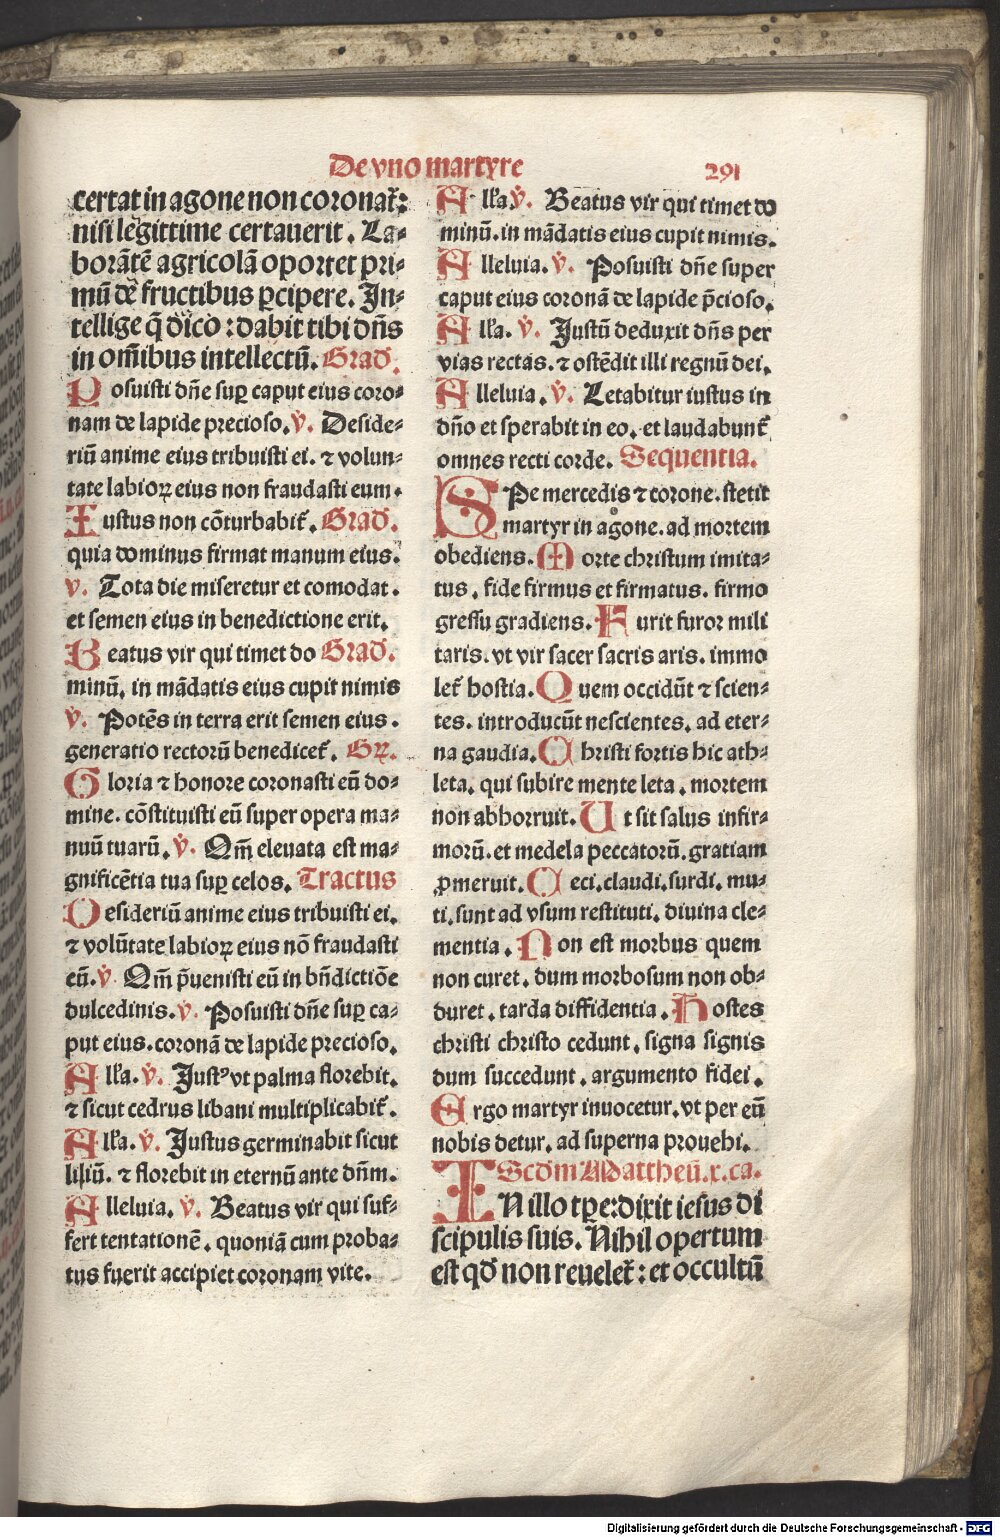 De vno martyre
291
certat in agone non coronat᷑:
nisi legittime certauerit. La-
borātē agricolā oportet pri-
mū de fructibus ꝑcipere. In-
tellige q̄ dico: dabit tibi dn̄s
in om̄ibus intellectū. Grad̄.
Posuisti dn̄e suꝑ caput eius coro-
nam de lapide precioso. v̇. Deside-
riū anime eius tribuisti ei. ⁊ volun-
tate labioꝝ eius non fraudasti eum.
Iustus non cōturbabit᷑. Grad̄.
quia dominus firmat manum eius.
v. Tota die miseretur et comodat.
et semen eius in benedictione erit.
Beatus vir qui timet do Grad̄.
minū. in mādatis eius cupit nimis
v̇. Potēs in terra erit semen eius.
generatio rectorū benedicet᷑. Gꝝ.
Gloria ⁊ honore coronasti eū do-
mine. cōstituisti eū super opera ma-
nuū tuarū. v̇. Qm̄ eleuata est ma-
gnificētia tua suꝑ celos. Tractus
Desideriū anime eius tribuisti ei.
⁊ volūtate labioꝝ eius nō fraudasti
eū. v̇. Qm̄ p̄uenisti eū in bn̄dictiōe
dulcedinis. v̇. Posuisti dn̄e suꝑ ca-
put eius. coronā de lapide precioso.
Alľa. v̇. Justꝰ vt palma florebit.
⁊ sicut cedrus libani multiplicabit᷑.
Alľa. v̇. Justus germinabit sicut
liliū. ⁊ florebit in eternū ante dn̄m.
Alleluia. v̇. Beatus vir qui suf-
fert tentationē. quoniā cum proba-
tus fuerit accipiet coronam vite.
Alľa. v̇. Beatus vir qui timet do
minū. in mādatis eius cupit nimis.
Alleluia. v̇. Posuisti dn̄e super
caput eius coronā de lapide p̄cioso.
Alľa. v̇. Justū deduxit dn̄s per
vias rectas. ⁊ ostēdit illi regnū dei.
Alleluia. v̇. Letabitur iustus in
dn̄o et sperabit in eo. et laudabunt᷑
omnes recti corde. Sequentia.
SPe mercedis ⁊ corone. stetit
martyr in agone. ad mortem
obediens. Morte christum imita-
tus. fide firmus et firmatus. firmo
gressu gradiens. Furit furor mili
taris. vt vir sacer sacris aris. immo
let᷑ hostia. Quem occidūt ⁊ scien-
tes. introducūt nescientes. ad eter-
na gaudia. Christi fortis hic ath-
leta. qui subire mente leta. mortem
non abhorruit. Ut sit salus infir-
morū. et medela peccatorū. gratiam
ꝓmeruit. Ceci. claudi. surdi. mu-
ti. sunt ad vsum restituti. diuina cle-
mentia. Non est morbus quem
non curet. dum morbosum non ob-
duret. tarda diffidentia. Hostes
christi christo cedunt. signa signis
dum succedunt. argumento fidei.
Ergo martyr inuocetur. vt per eū
nobis detur. ad superna prouehi.
Scd̄m Mattheū. x. ca.
IN illo tꝑe: dixit iesus di
scipulis suis. Nihil opertum
est qd̄ non reuelet᷑: et occultū
Digitalisierung gefördert durch die Deutsche Forschungsgemeinschaft - DFG